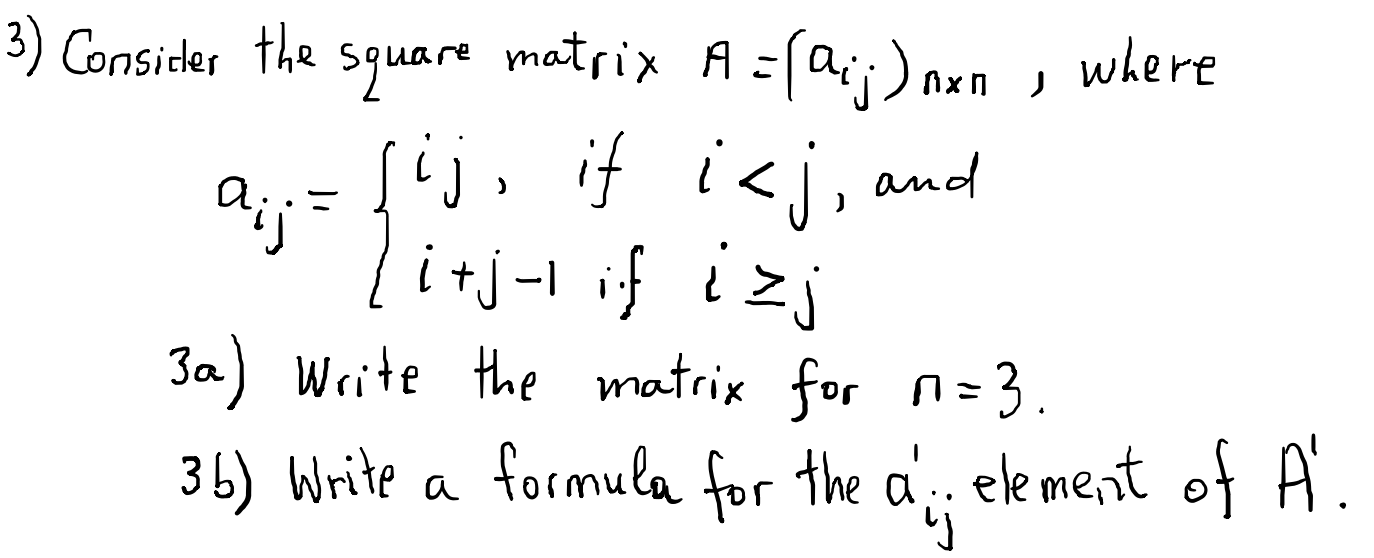 3) Consider the square matrix A = (a_{ij})_{n×n} , where
a_{ij} = { ij , if i < j , and
i + j - 1 if i ≥ j
3a) Write the matrix for n = 3.
3b) Write a formula for the a'_{ij} element of A'.